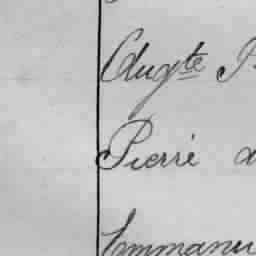 Augte
Pierre
Emmanu